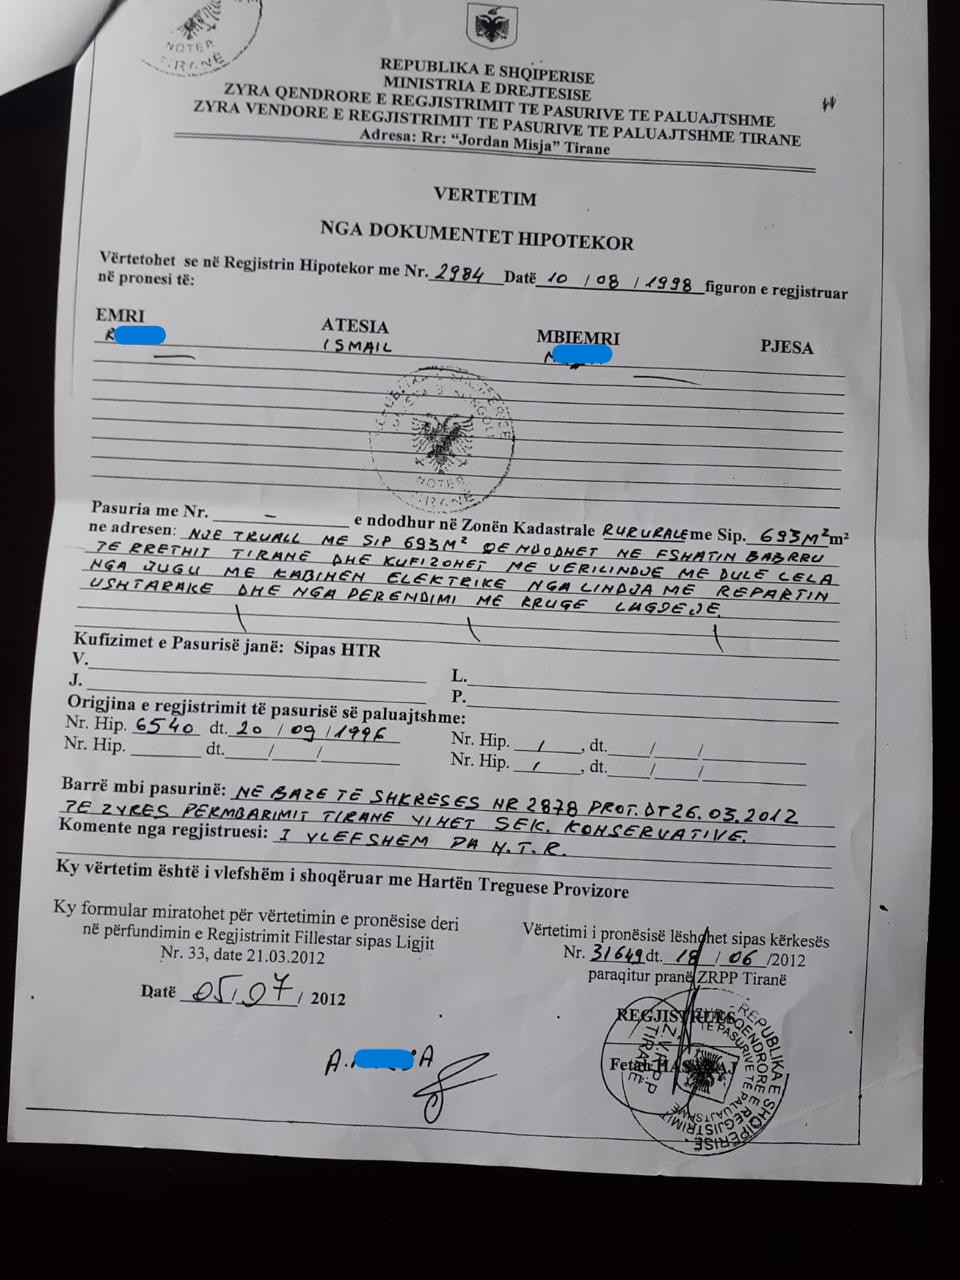 NOTER
TIRANË
REPUBLIKA E SHQIPERISE
MINISTRIA E DREJTESISE
ZYRA QENDRORE E REGJISTRIMIT TE PASURIVE TE PALUAJTSHME
ZYRA VENDORE E REGJISTRIMIT TE PASURIVE TE PALUAJTSHME TIRANE
Adresa: Rr: “Jordan Misja” Tirane
VERTETIM
NGA DOKUMENTET HIPOTEKOR
Vërtetohet se në Regjistrin Hipotekor me Nr. 2984 Datë 10 / 08 / 1998 figuron e regjistruar
në pronesi të:
EMRI ATESIA MBIEMRI PJESA
R ISMAIL
NOTER
TIRANE
Pasuria me Nr. – e ndodhur në Zonën Kadastrale RURURALE me Sip. 693M² m²
ne adresen: NJE TRUALL ME SIP 693M² QE NDODHET NE FSHATIN BABRRU
TE RRETHIT TIRANE DHE KUFIZOHET ME VERILINDJE ME DULE CELA
NGA JUGU ME KABINEN ELEKTRIKE NGA LINDJA ME REPARTIN
USHTARAKE DHE NGA PERENDIMI ME RRUGE LAGJEJE.
Kufizimet e Pasurisë janë: Sipas HTR
V. L.
J. P.
Origjina e regjistrimit të pasurisë së paluajtshme:
Nr. Hip. 6540 dt. 20 / 09 / 1996 Nr. Hip. / , dt. / /
Nr. Hip. dt. / / Nr. Hip. / , dt. / /
Barrë mbi pasurinë: NE BAZE TË SHKRESES NR 2878 PROT. DT 26.03.2012
TE ZYRES PERMBARIMIT TIRANE VIHET SEK. KONSERVATIVE.
Komente nga regjistruesi: I VLEFSHEM PA N.T.R.
Ky vërtetim është i vlefshëm i shoqëruar me Hartën Treguese Provizore
Ky formular miratohet për vërtetimin e pronësise deri
në përfundimin e Regjistrimit Fillestar sipas Ligjit
Nr. 33, date 21.03.2012
Datë 05/07/ 2012
Vërtetimi i pronësisë lëshohet sipas kërkesës
Nr. 31649 dt. 18 / 06 /2012
paraqitur pranë ZRPP Tiranë
REGJISTRUES
A. A
REPUBLIKA E SHQIPERISË